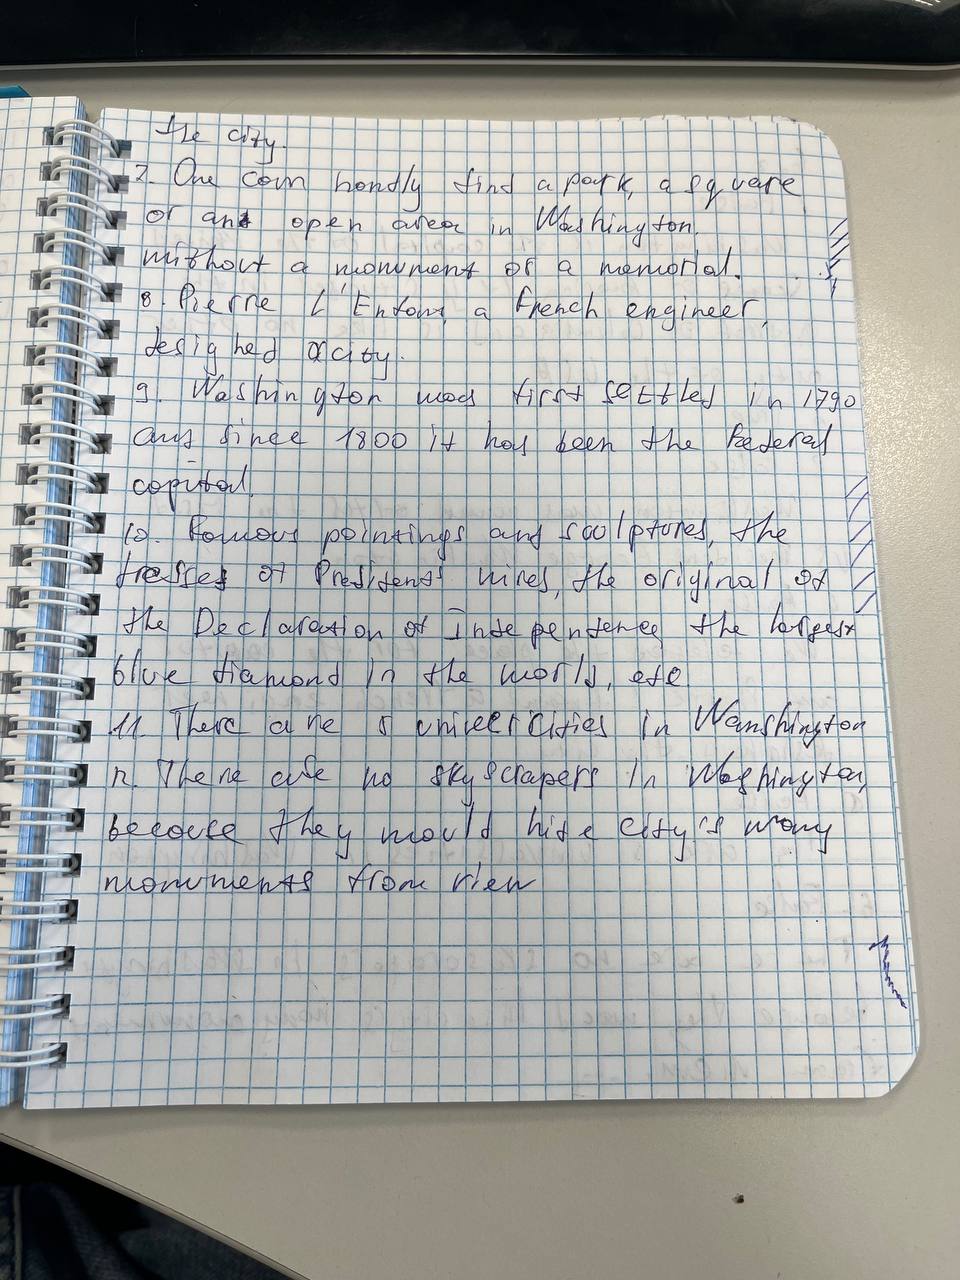 the city.
7. One can hardly find a park, a square
or an open area in Washington
without a monument or a memorial.
8. Pierre L'Enfant, a French engineer,
designed a city.
9. Washington was first settled in 1790
and since 1800 it has been the Federal
capital.
10. Famous paintings and sculptures, the
dresses of Presidents' wives, the original of
the Declaration of Independence, the largest
blue diamond in the world, etc
11. There are 5 univercities in Wanshington
12. There are no skyscrapers in Washington,
becouse they would hide city's many
monuments from view